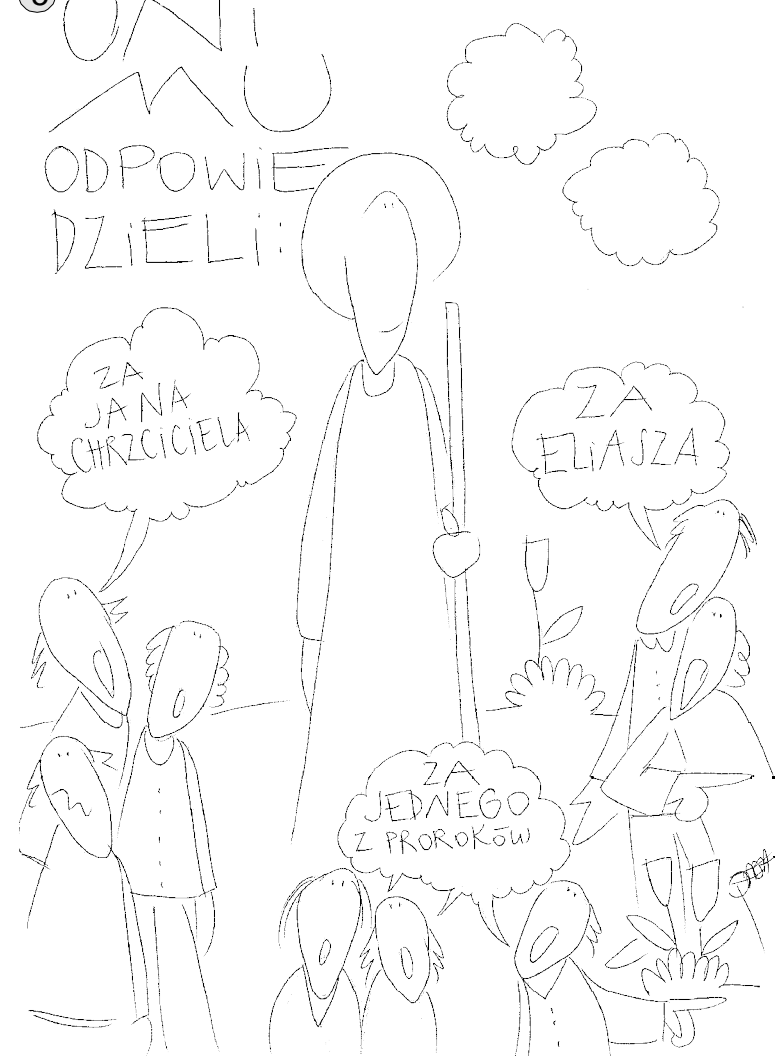 ONI
MU
ODPOWIE
DZiELi:
ZA
JANA
CHRZCICIELA
ZA
ELiASZA
ZA
JEDNEGO
Z PROROKÓW